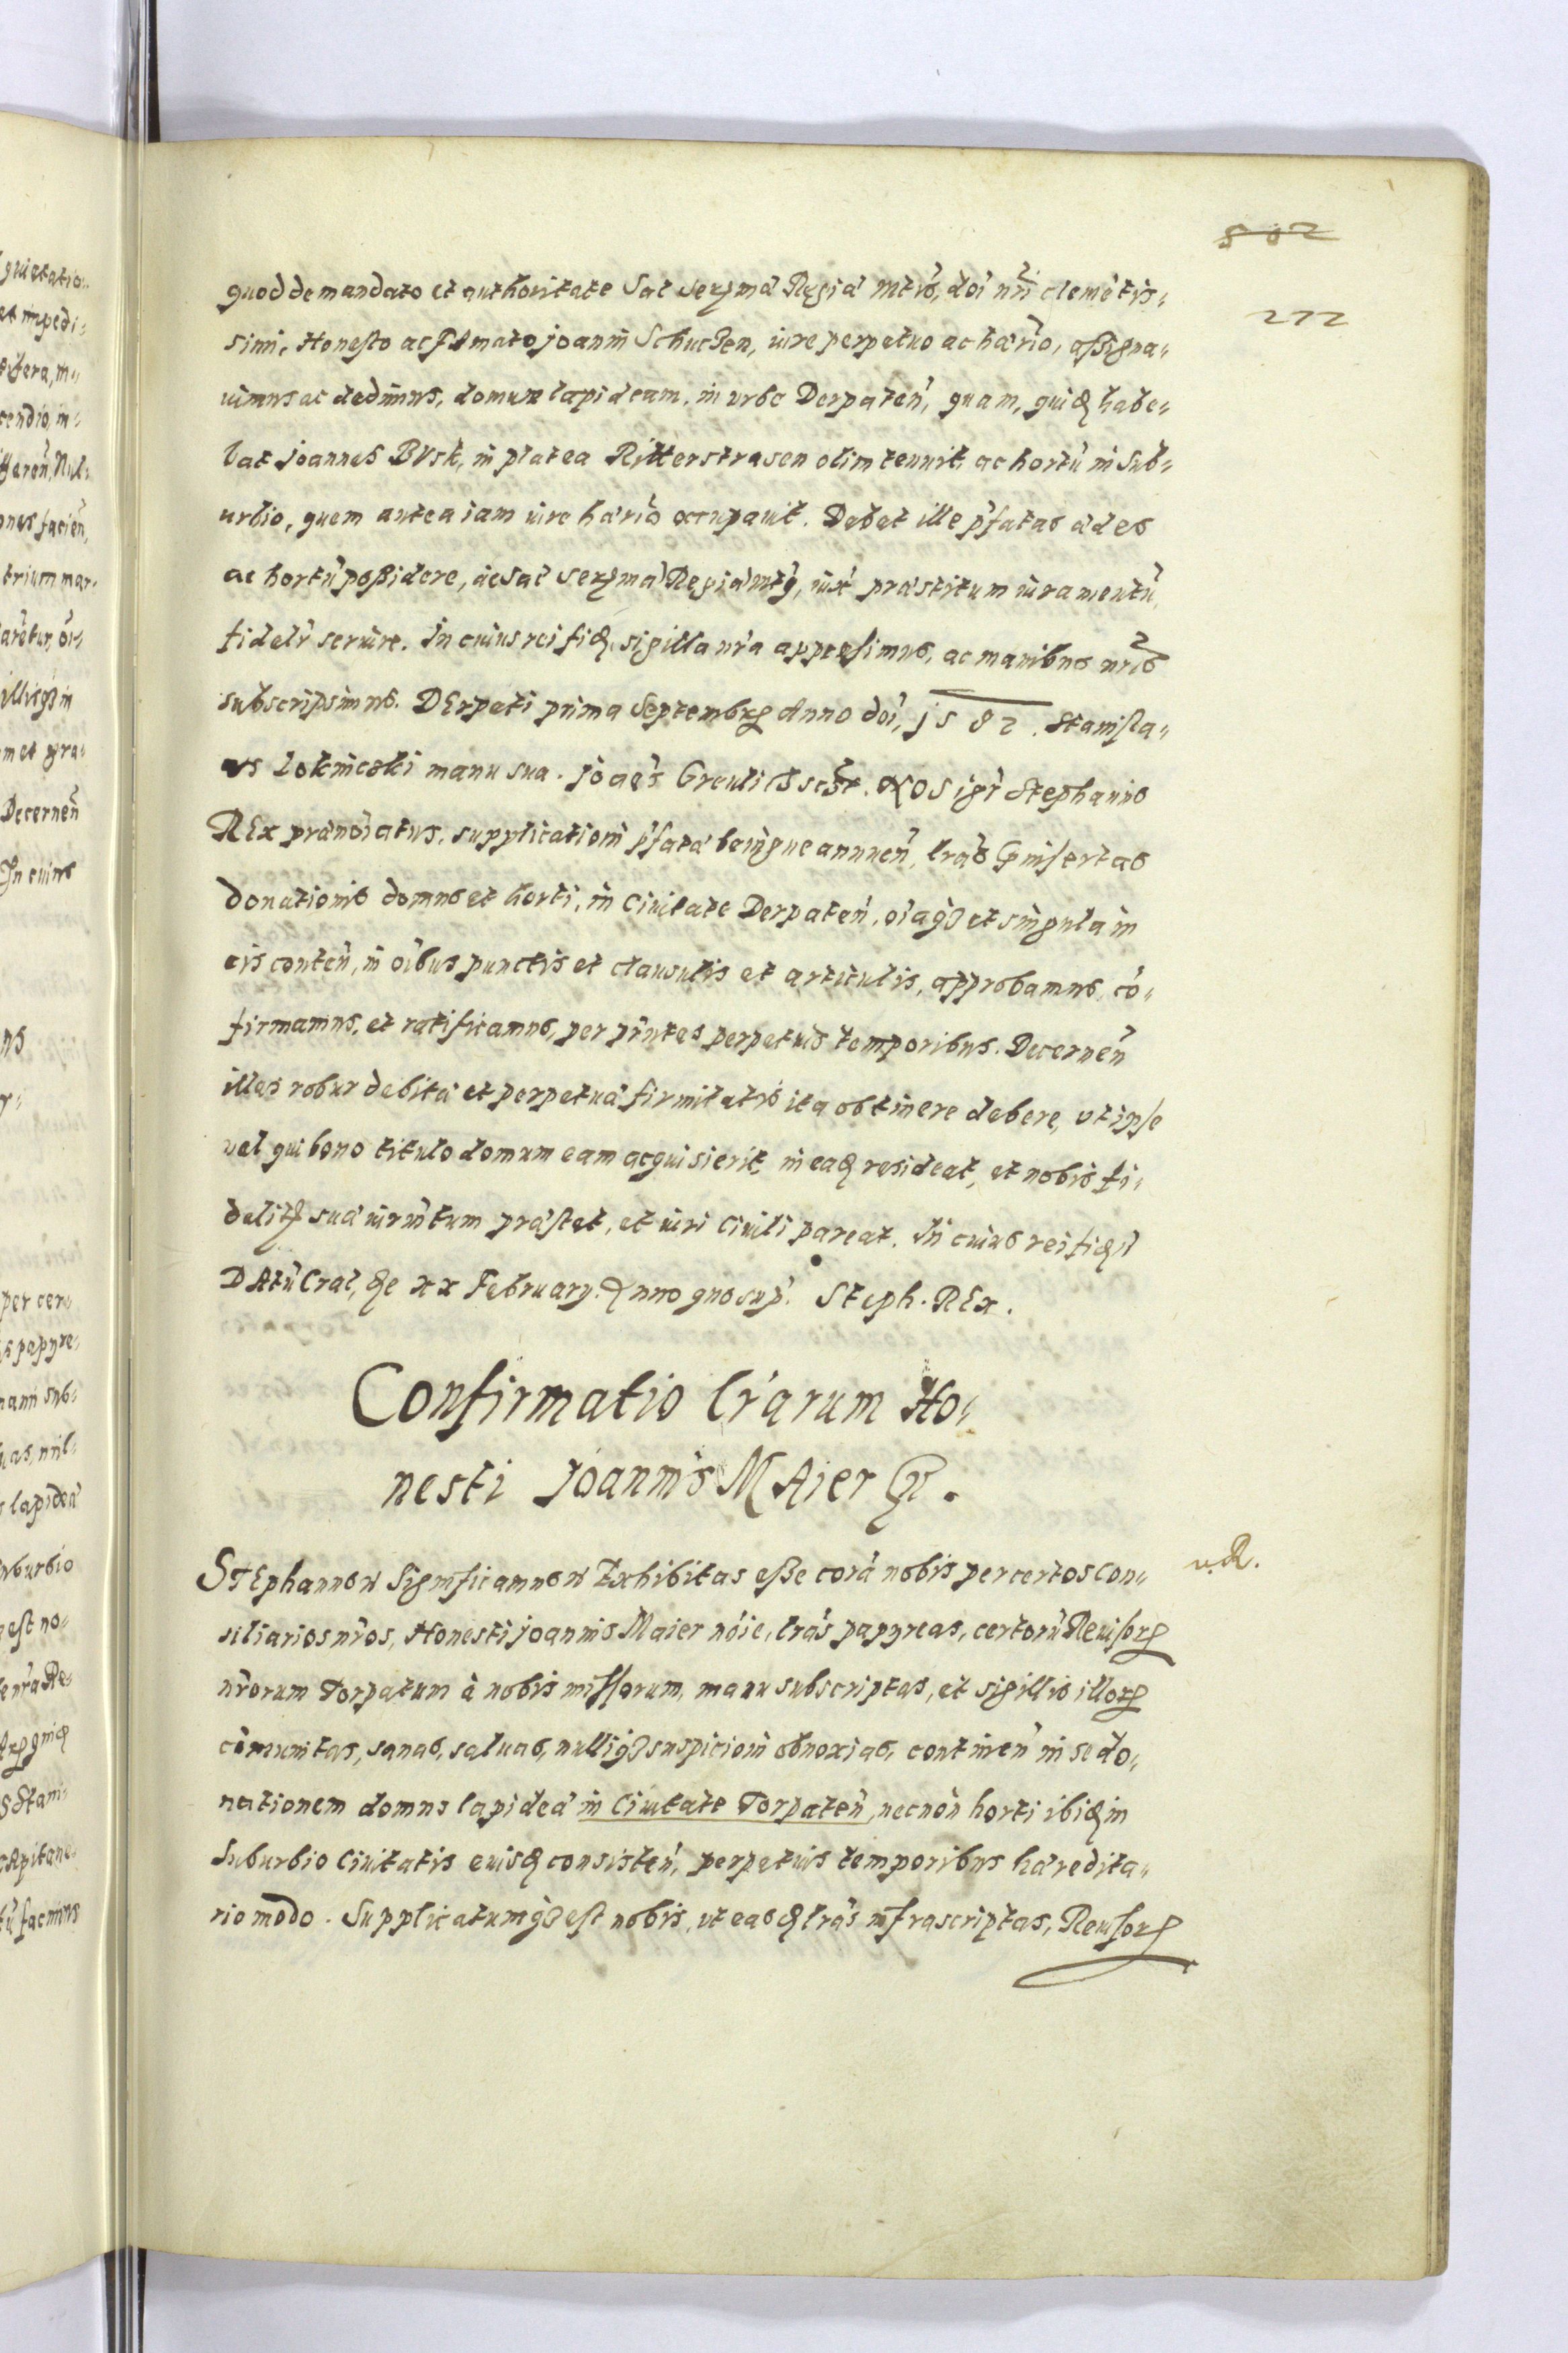 502
272
quod de mandato et authoritate Sac Sermã Regiã Mtis, doi nri clemẽtis-
simi, Honesto ac famato joanni Schucsen, iure perpetuo ac hærio, assigna-
uimus ac dedimus, domum lapideam, in urbe Derpateñ, quam, quid habe-
bat joannes Busk, in platea Ritterstrasen olim tenuit, ac hortũ in sub-
urbio, quem antea iam iure hærio occupauit. Debet ille pfatas ædes
ac hortũ possidere, ac Sac Sermã Regiã Mti, iux præstitum iuramentũ,
fidelr seruire. In cuius rei fid. sigilla nra appressimus, ac manibus nris
subscripsimus. DErpati prima Septembr Anno doi, js82. Stanisla-
us manu sua. joaes Greulich scst. NOS igr Stephanus
REx prænoiatus, supplicationi pfatæ benigne annueñ, lras pinsertas
donationis domus et horti, in Ciuitate Derpateñ, oiaq3 et singula in
eis conteñ, in oibus punctis et clausulis et articulis, approbamus, cõ-
firmamus, et ratificamus, per pñtes perpetuis temporibus. Decerneñ
illas robur debitæ et perpetuæ firmitatis ita obtinere debere, ut ipse
vel qui bono titulo domum eam acquisierit, in ead resideat, et nobis fi-
delit suæ iurmtum præstet, et iuri Ciuili pareat. In cuius rei fid
DAtũ Crac, de xx February. Anno quo sup. Steph. REx.
Confirmatio lrarum Ho-
nesti joannis MAier
StEphannus Significamus Exhibitas esse corã nobis per certos con-
siliarios nros, Honesti joannis Maier noie, lras papyreas, certorũ Reuisor
nrorum Torpatum à nobis missorum, manu subscriptas, et sigillis illor
cõmunitas, sanas, saluas, nulliq3 suspicioni obnoxias, contineñ in se do-
nationem domus lapideæ in Ciuitate Torpateñ, necnon horti ibid in
Suburbio Ciuitatis eiusd consisteñ, perpetuis temporibus hæredita-
rio modo. Supplicatumq3 est nobis, ut easd lras infrascriptas, Reuisor